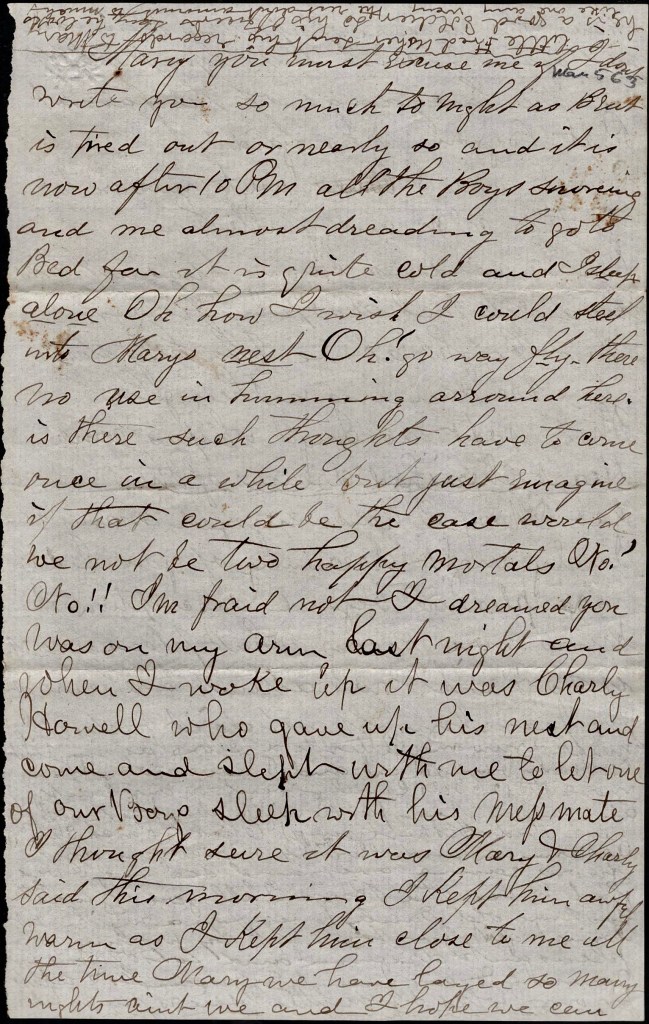 Mary you must Excuse me if I dont
Mar 5 63
write you so much to night as Brut
is tired out or nearly so and it is
now after 10 PM all the Boys snoreing
and me almost dreading to go to
Bed for it is quite cold and I sleep
alone Oh how I wish I could steel
into Marys nest Oh! go way fly- there
no use in humming arround here.
is there such thoughts have to come
once in a while but just imagine
if that could be the case would
we not be two happy mortals No!
No!! I'm fraid not I dreamed you
was on my arm last night and
when I woke up it was Charly
Howell who gave up his nest and
come and slept with me to let one
of our Boys sleep with his Messmate
I thought sure it was Mary & Charly
said this morning I Kept him awful
warm as I Kept him close to me all
the time Mary we have layed so many
nights aint we and I hope we can
to little regards to Mary
he is a good Soldier